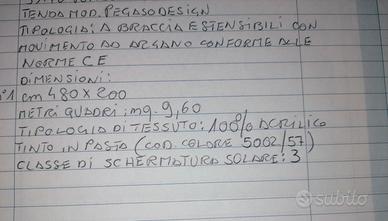 TENDA MOD. PEGASO DESIGN
TIPOLOGIA: A BRACCIA ESTENSIBILI CON
MOVIMENTO AD ARGANO CONFORME ALLE
NORME CE
DIMENSIONI:
N°1 cm 480 x 200
METRI QUADRI: mq. 9,60
TIPOLOGIA DI TESSUTO: 100% ACRILICO
TINTO IN PASTA (COD. COLORE 5002/57)
CLASSE DI SCHERMATURA SOLARE: 3
subito